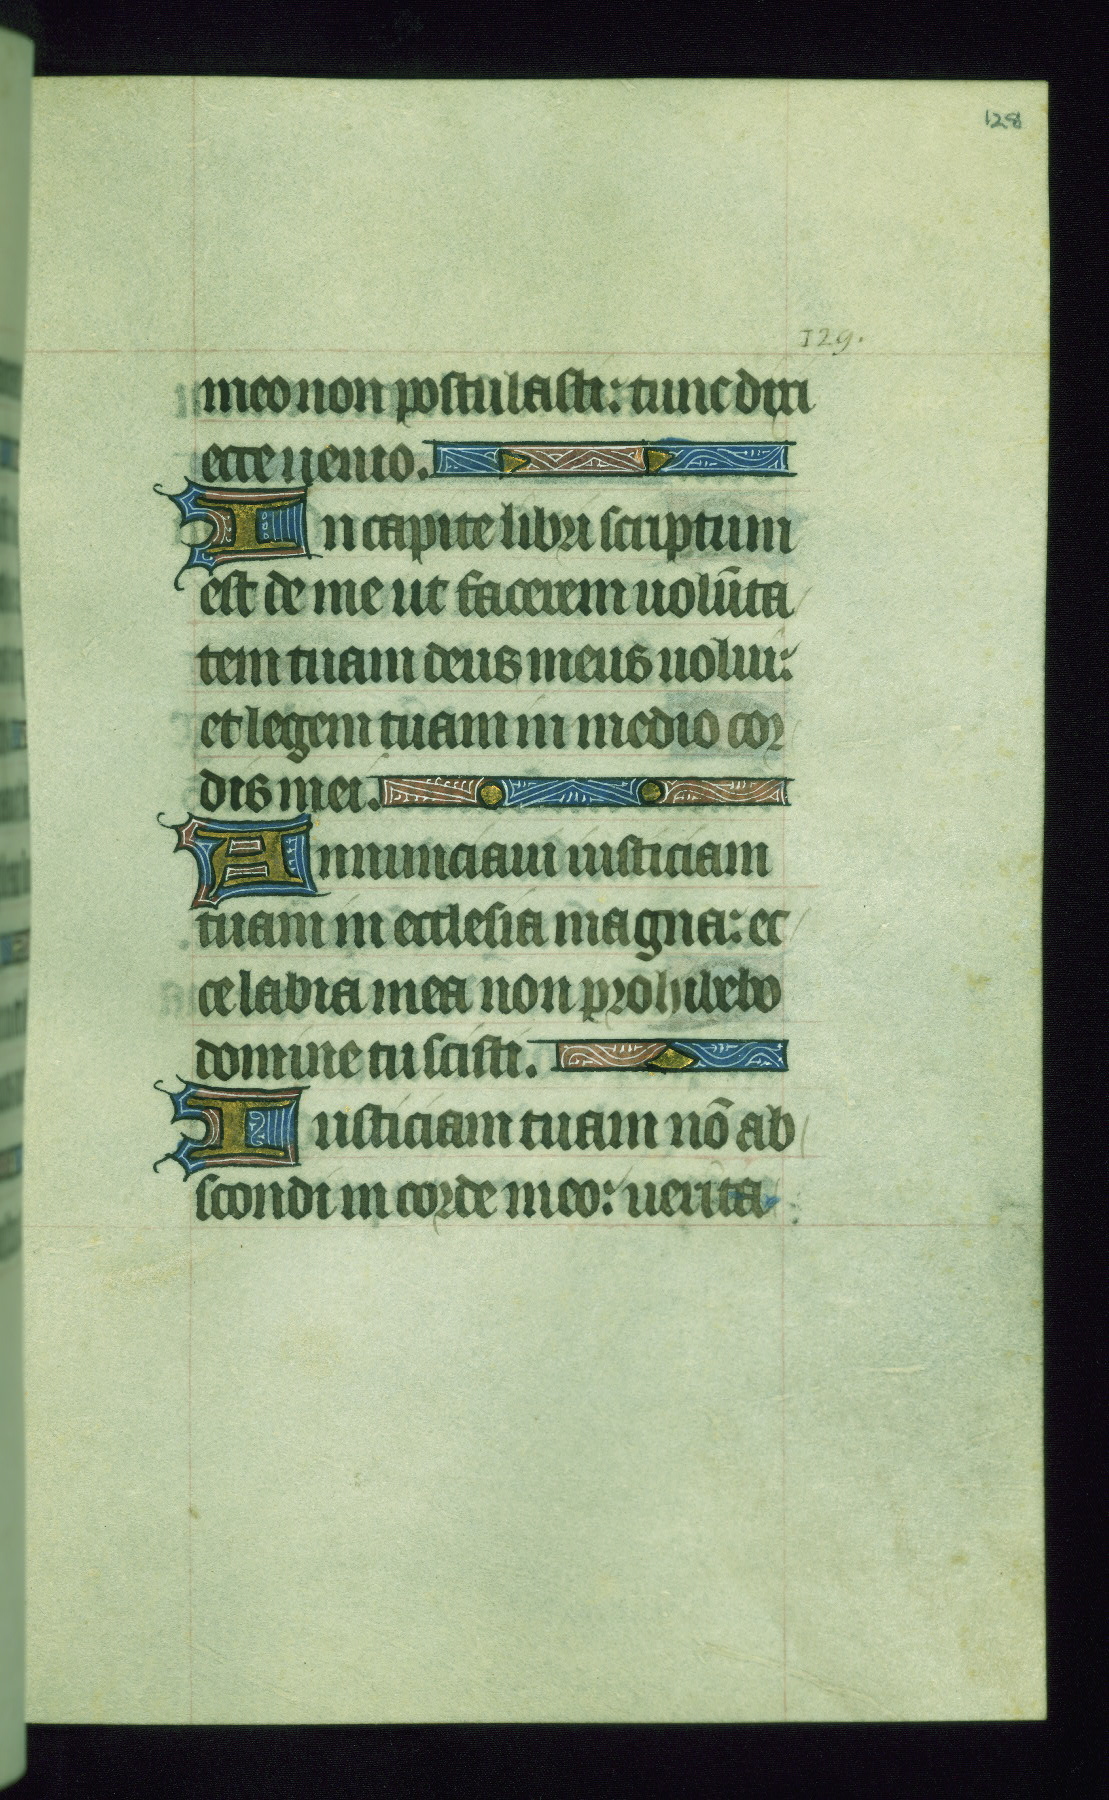 128
129.
meo non postulasti: tunc dixi
ecce uenio.
In capite libri scriptum
est de me ut facerem uolūta
tem tuam deus meus uolui:
et legem tuam in medio cor
dis mei.
Annunciaui iusticiam
tuam in ecclesia magna: ec
ce labia mea non prohibebo
domine tu scisti.
Iusticiam tuam nō ab
scondi in corde meo: uerita